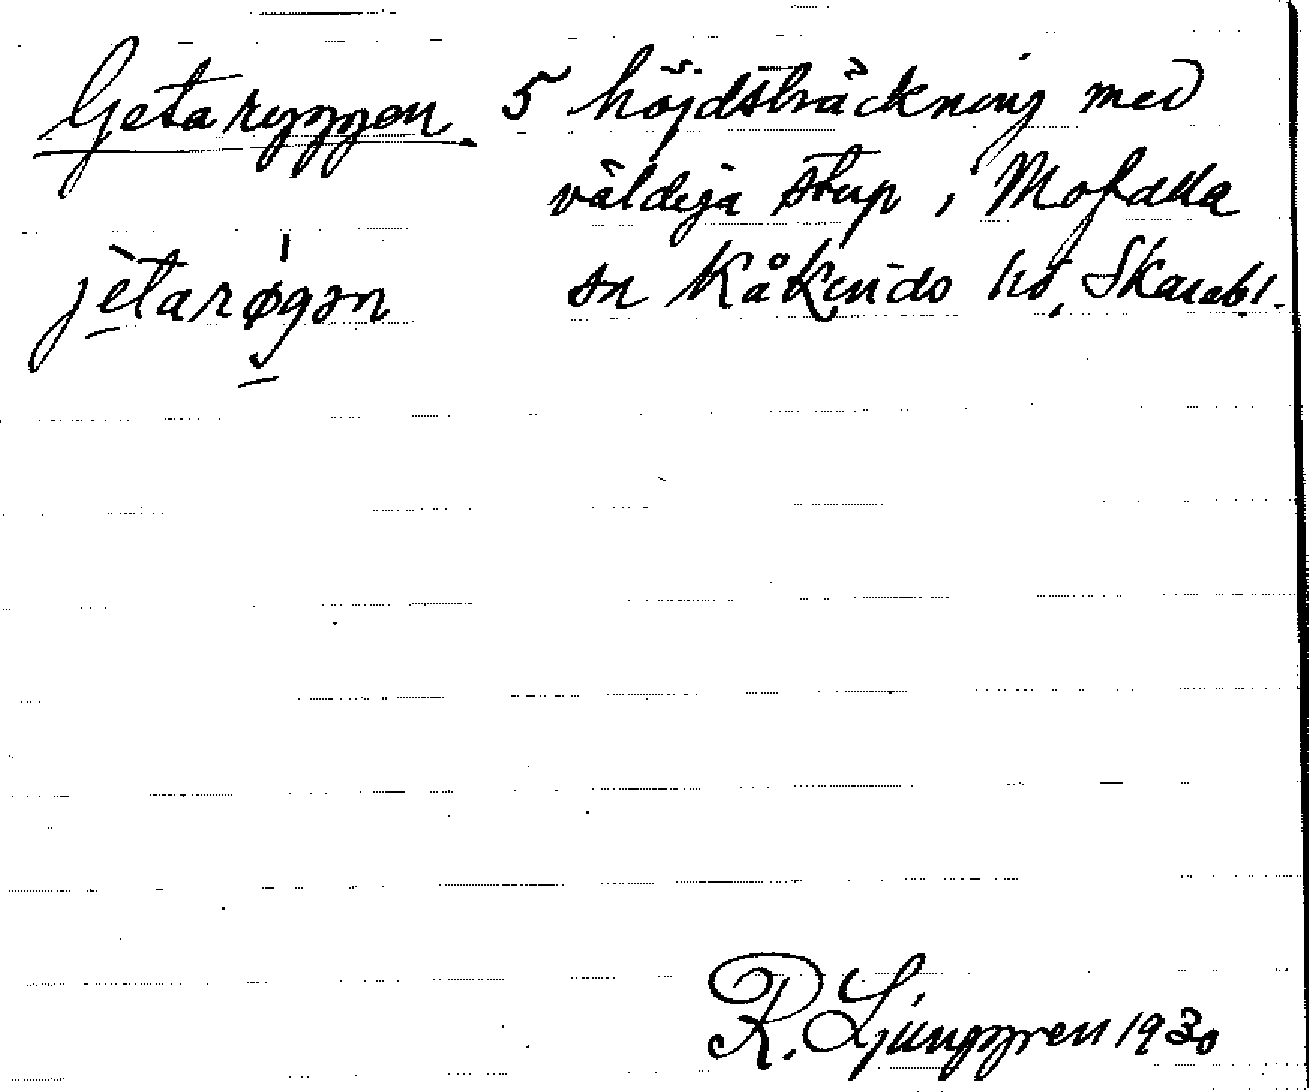 Getaryggen. 5 höjdsträckning med
väldiga stup, Mofalla
jètarøgən sn Kåkinds hd, Skarabl.
R. Ljunggren 1930